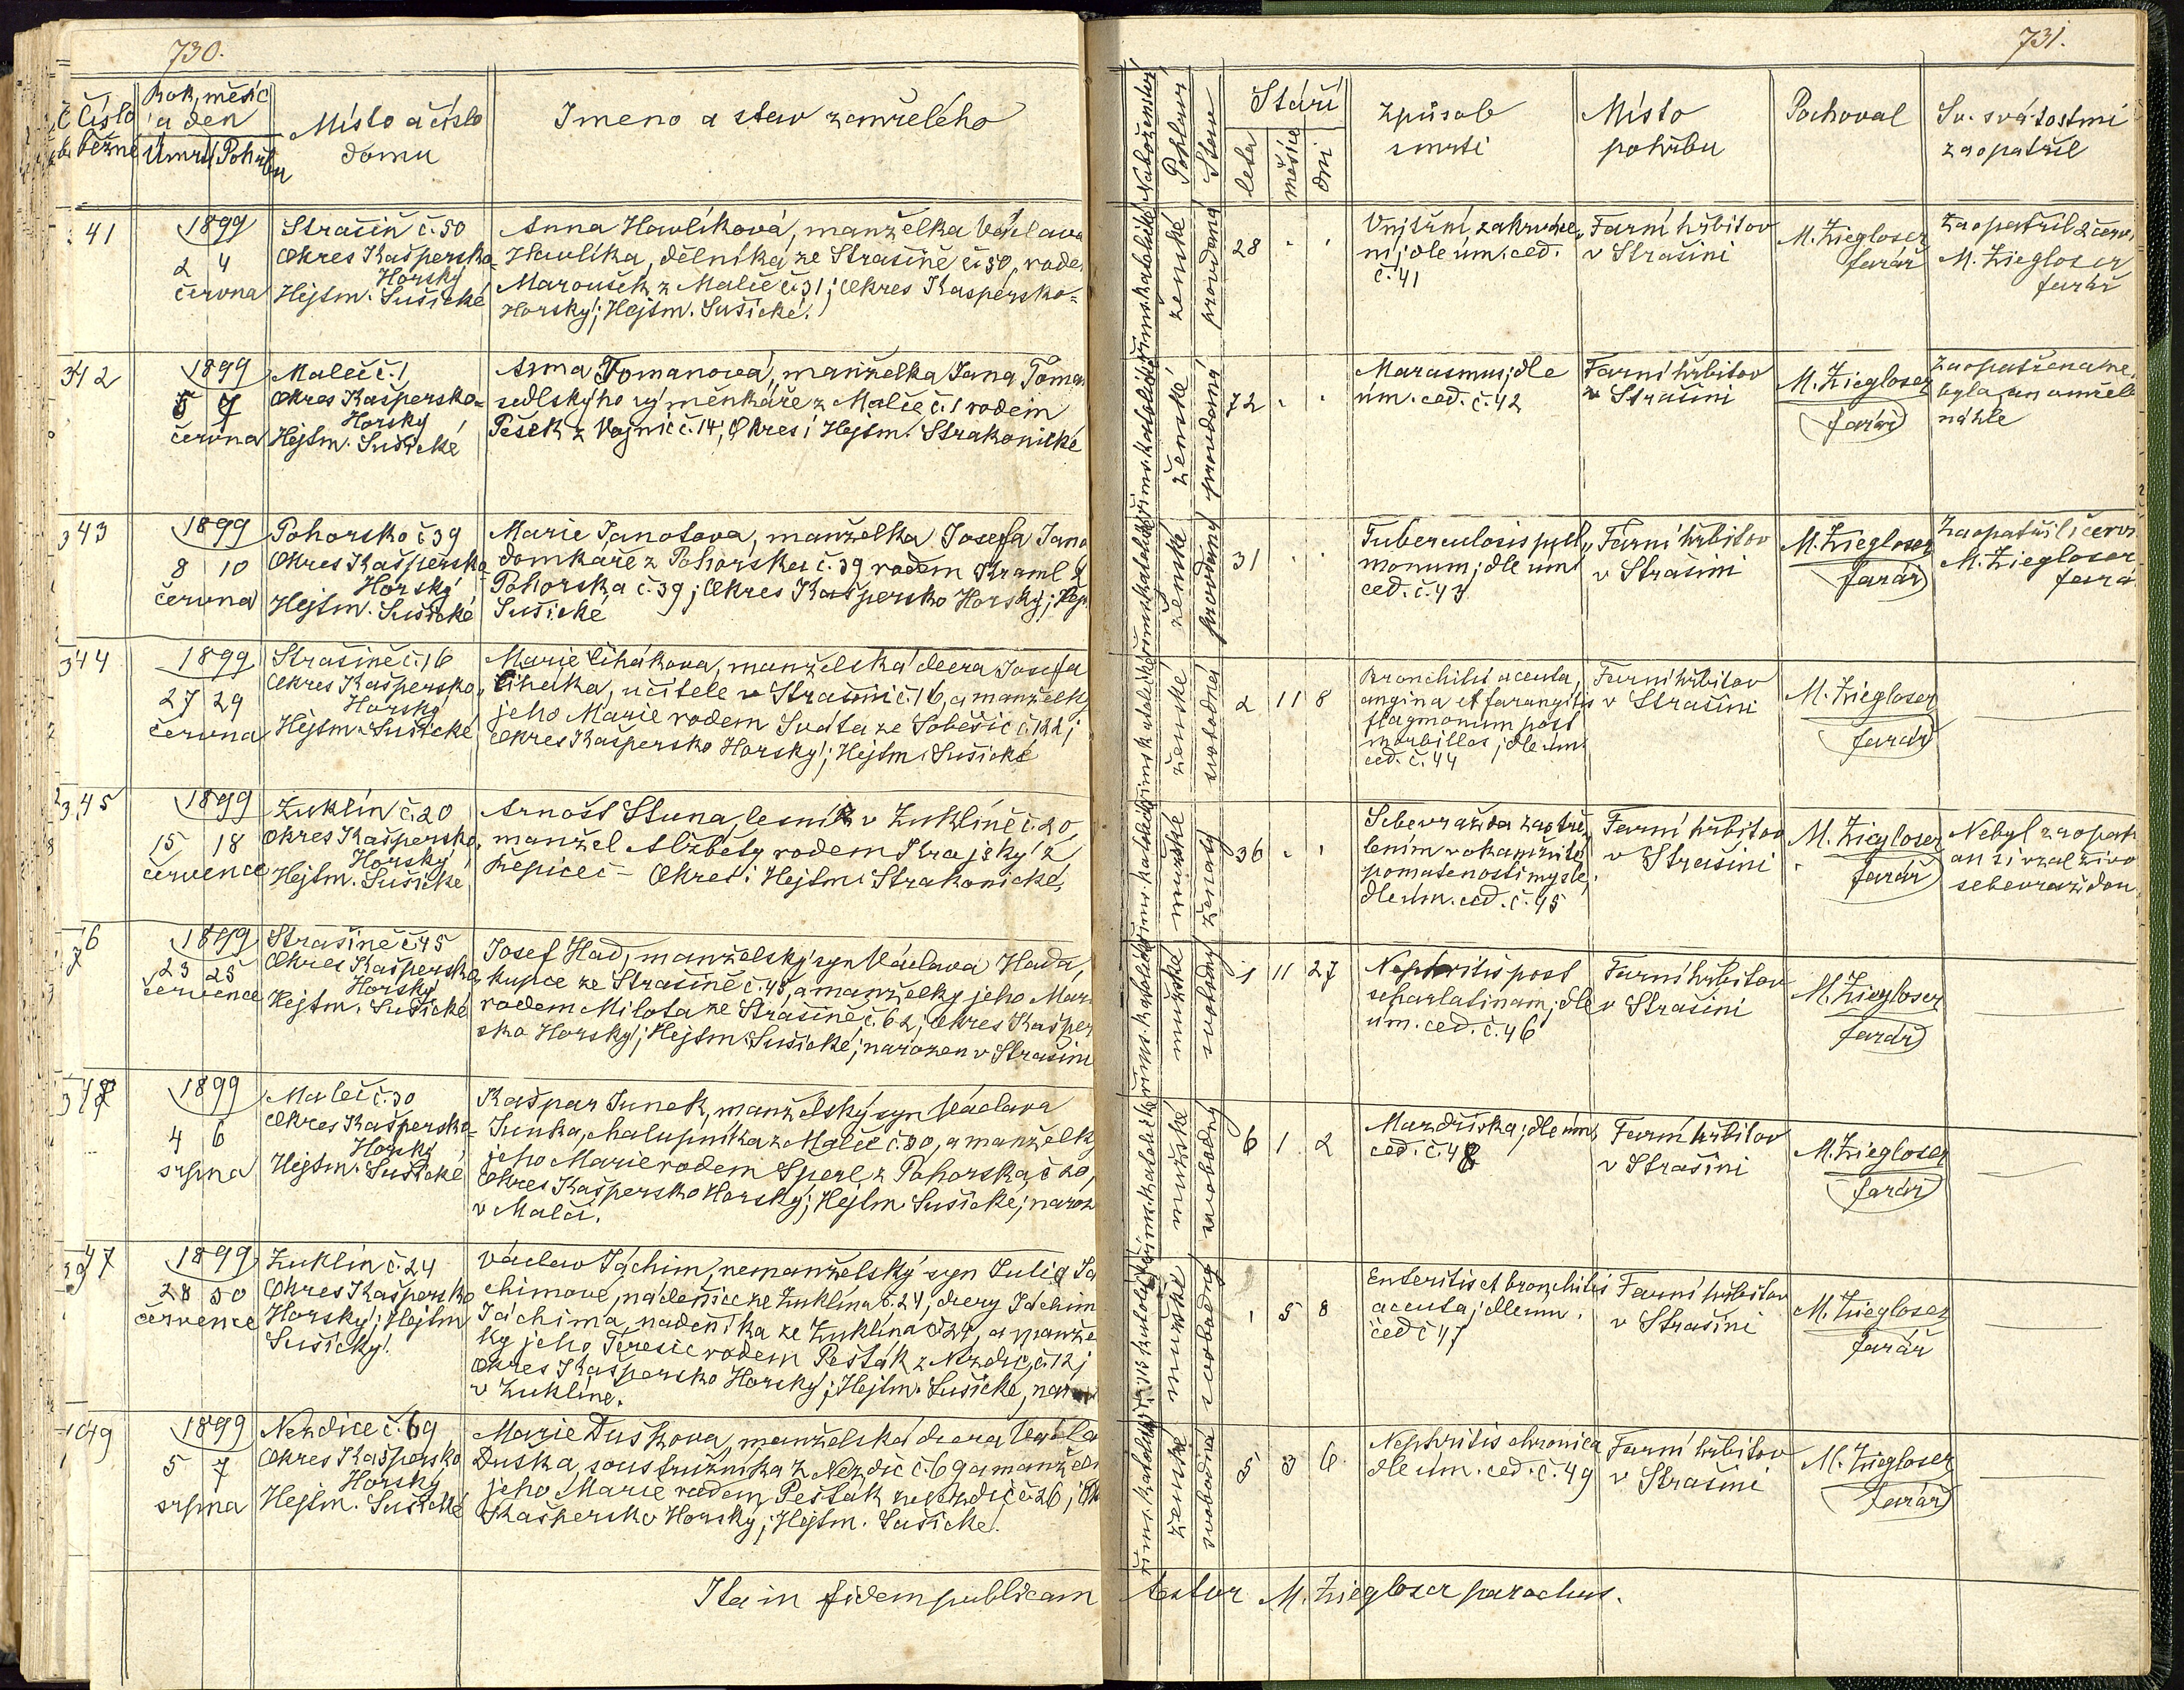 730.
Číslo běžné
Rok, měsíc a den
Úmrtí Pohřbu
Místo a číslo domu
Jméno a stav zemřelého
41
1899
2 4
června
Strašín č. 50
Okres Kašpersko-
Horský
Hejtm. Sušické
Anna Havlíková, manželka Václava
Havlíka, dělníka ze Strašíně č. 50, rodem
Maroušek z Malče č. 31; Okres Kašpersko-
Horský; Hejtm. Sušické.
342
1899
5 7
června
Maleč č. 1
Okres Kašpersko-
Horský,
Hejtm. Sušické
Anna Tomanová, manželka Jana Toma
sedlskýho výměnkáře z Malče č. 1 rodem
Pešek z Vojnic č. 14; Okres i Hejtm. Strakonické
343
1899
8 10
června
Pohorsko č 39
Okres Kašpersko
Horský
Hejtm. Sušické
Marie Janotova, manželka Josefa Jano
domkáře z Pohorska č. 39 rodem Kraml z
Pohorska č. 39; Okres Kašpersko Horský; Hej
Sušické
344
1899
27 29
června
Strašíně č. 16
Okres Kašpersko
Horský
Hejtm. Sušické
Marie Čihákova, manželská dcera Josefa
Čiháka, učitele v Strašíni č. 16, a manželky
jeho Marie rodem Sváta ze Soběšic č. 122;
Okres Kašpersko Horský; Hejtm. Sušické
345
1899
15 18
července
Zuklín č. 20
Okres Kašpersko
Horský,
Hejtm. Sušické
Arnošt Stuna, lesník v Zuklíně č. 20,
manžel Alžběty rodem Krajský z
Řepice č – Okres i Hejtm. Strakonické,
6
7
1899
23 25
července
Strašíně č 45
Okres Kašpersko
Horský
Hejtm. Sušické
Josef Had, manželský syn Václava Hada,
kupce ze Strašíně č. 45, a manželky jeho Mar
rodem Milota ze Strašíně č. 62; Okres Kašper
sko Horský; Hejtm. Sušické; narozen v Strašíni
348
1899
4 6
srpna
Maleč č. 30
Okres Kašpersko-
Horský,
Hejtm. Sušické
Kašpar Junek, manželský syn Václava
Junka, chalupníka z Malče č. 30, a manželky
jeho Marie rodem Sperl z Pohorska č 20,
Okres Kašpersko Horský; Hejtm. Sušické; naroz
v Malči.
47
1899
28 30
července
Zuklín č. 24
Okres Kašpersko
Horský; Hejtm
Sušický.
Václav Jáchim, nemanželský syn Julie Já
chimove, nádenice ze Zuklína č. 24, dcery Jáchim
Jáchima, nádeníka ze Zuklína č 24, a manžel
ky jeho Teresie rodem Pešták z Nezdic, č. 12;
Okres Kašpersko Horský; Hejtm. Sušické, naro
v Zuklíně.
49
1899
5 7
srpna
Nezdice č. 69
Okres Kašpersko
Horský
Hejtm. Sušické
Marie Dušková, manželská dcera Václa
Duška, soustružníka z Nezdic č. 69 a manžel
jeho Marie rodem Pešták z Nezdic č. 26; Ok
Kašpersko Horský; Hejtm. Sušické.
Ita in fidem publicam
731.
Náboženství
Pohlaví
Stav
Stáří
leta
měsíce
dni
Způsob smrti
Místo pohřbu
Pochoval
Sv. svátostmi zaopatřil
řims. katolické
ženské
provdaná
28
Vnitřní zakrváce
ní; dle úm. ced.
č. 41
Farní hřbitov
v Strašíni
M. Ziegloser
farář
Zaopatřil 2 červ.
M. Ziegloser
farář
řims. katolické
ženské
provdaná
72
Marasmus; dle
úm. ced. č. 42
Farní hřbitov
v Strašíni
M. Ziegloser
farář
Zaopatřena ne
byla, an umřela
náhle
řims. katolické
ženské
provdaná
31
Tuberculosis pul
monum; dle úm
ced. č. 43
Farní hřbitov
v Strašíni
M. Ziegloser
farář
Zaopatřil červ
M. Ziegloser
fará
řims. katolické
ženské
svobodná
2 11 8
Bronchitis acuta,
angina et farangitis
flagmonum post
morbillos; dle úm.
ced. č. 44
Farní hřbitov
v Strašíni
M. Ziegloser
farář
řims. katolické
mužské
ženatý
36
Sebevražda zastře
lením v okamžité
pomatenosti mysle,
dle úm. ced. č. 45
Farní hřbitov
v Strašíni
M. Ziegloser
farář
Nebyl zaopat
an si vzal živo
sebevraždou
řims. katolické
mužské
svobodný
1 11 27
Nephritis post
scharlatinam; dle
úm. ced. č. 46
Farní hřbitov
v Strašíni
M. Ziegloser
farář
řims. katolické
mužské
svobodný
6 1 2
Mázdřiska; dle úm,
ced. č. 48
Farní hřbitov
v Strašíni
M. Ziegloser
farář
řims. katolické
mužské
svobodný
1 5 8
Enteritis et bronchitis
acuta; dle úm.
ced č 47
Farní hřbitov
v Strašíni
M. Ziegloser
farář
řims. katolické
ženské
svobodná
5 3 6
Nephritis chronica
dle úm. ced. č. 49
Farní hřbitov
v Strašíni
M. Ziegloser
farář
testor M. Ziegloser parochus.